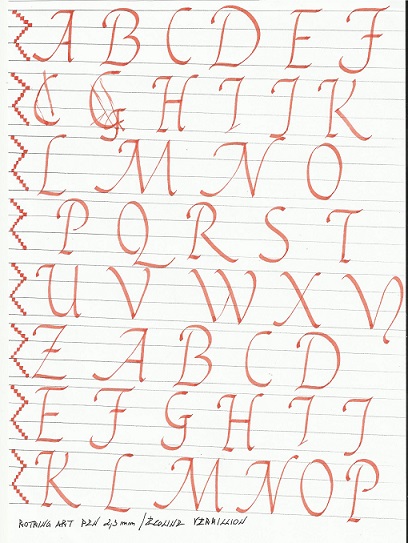 A B C D E F
G H I J K
L M N O
P Q R S T
U V W X Y
Z A B C D
E F G H I J
K L M N O P
ROTRING ART PEN 2,3 mm / ECOLINE VERMILLION